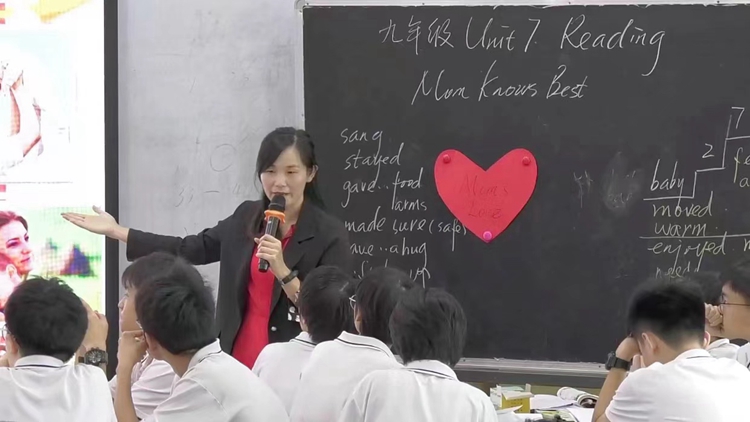 九年级 Unit 7. Reading
Mum Knows Best
sang
stayed
gave..food
arms
made sure (safe)
a hug
Mum's
Love
7
2
baby
moved
warm
enjoyed
need